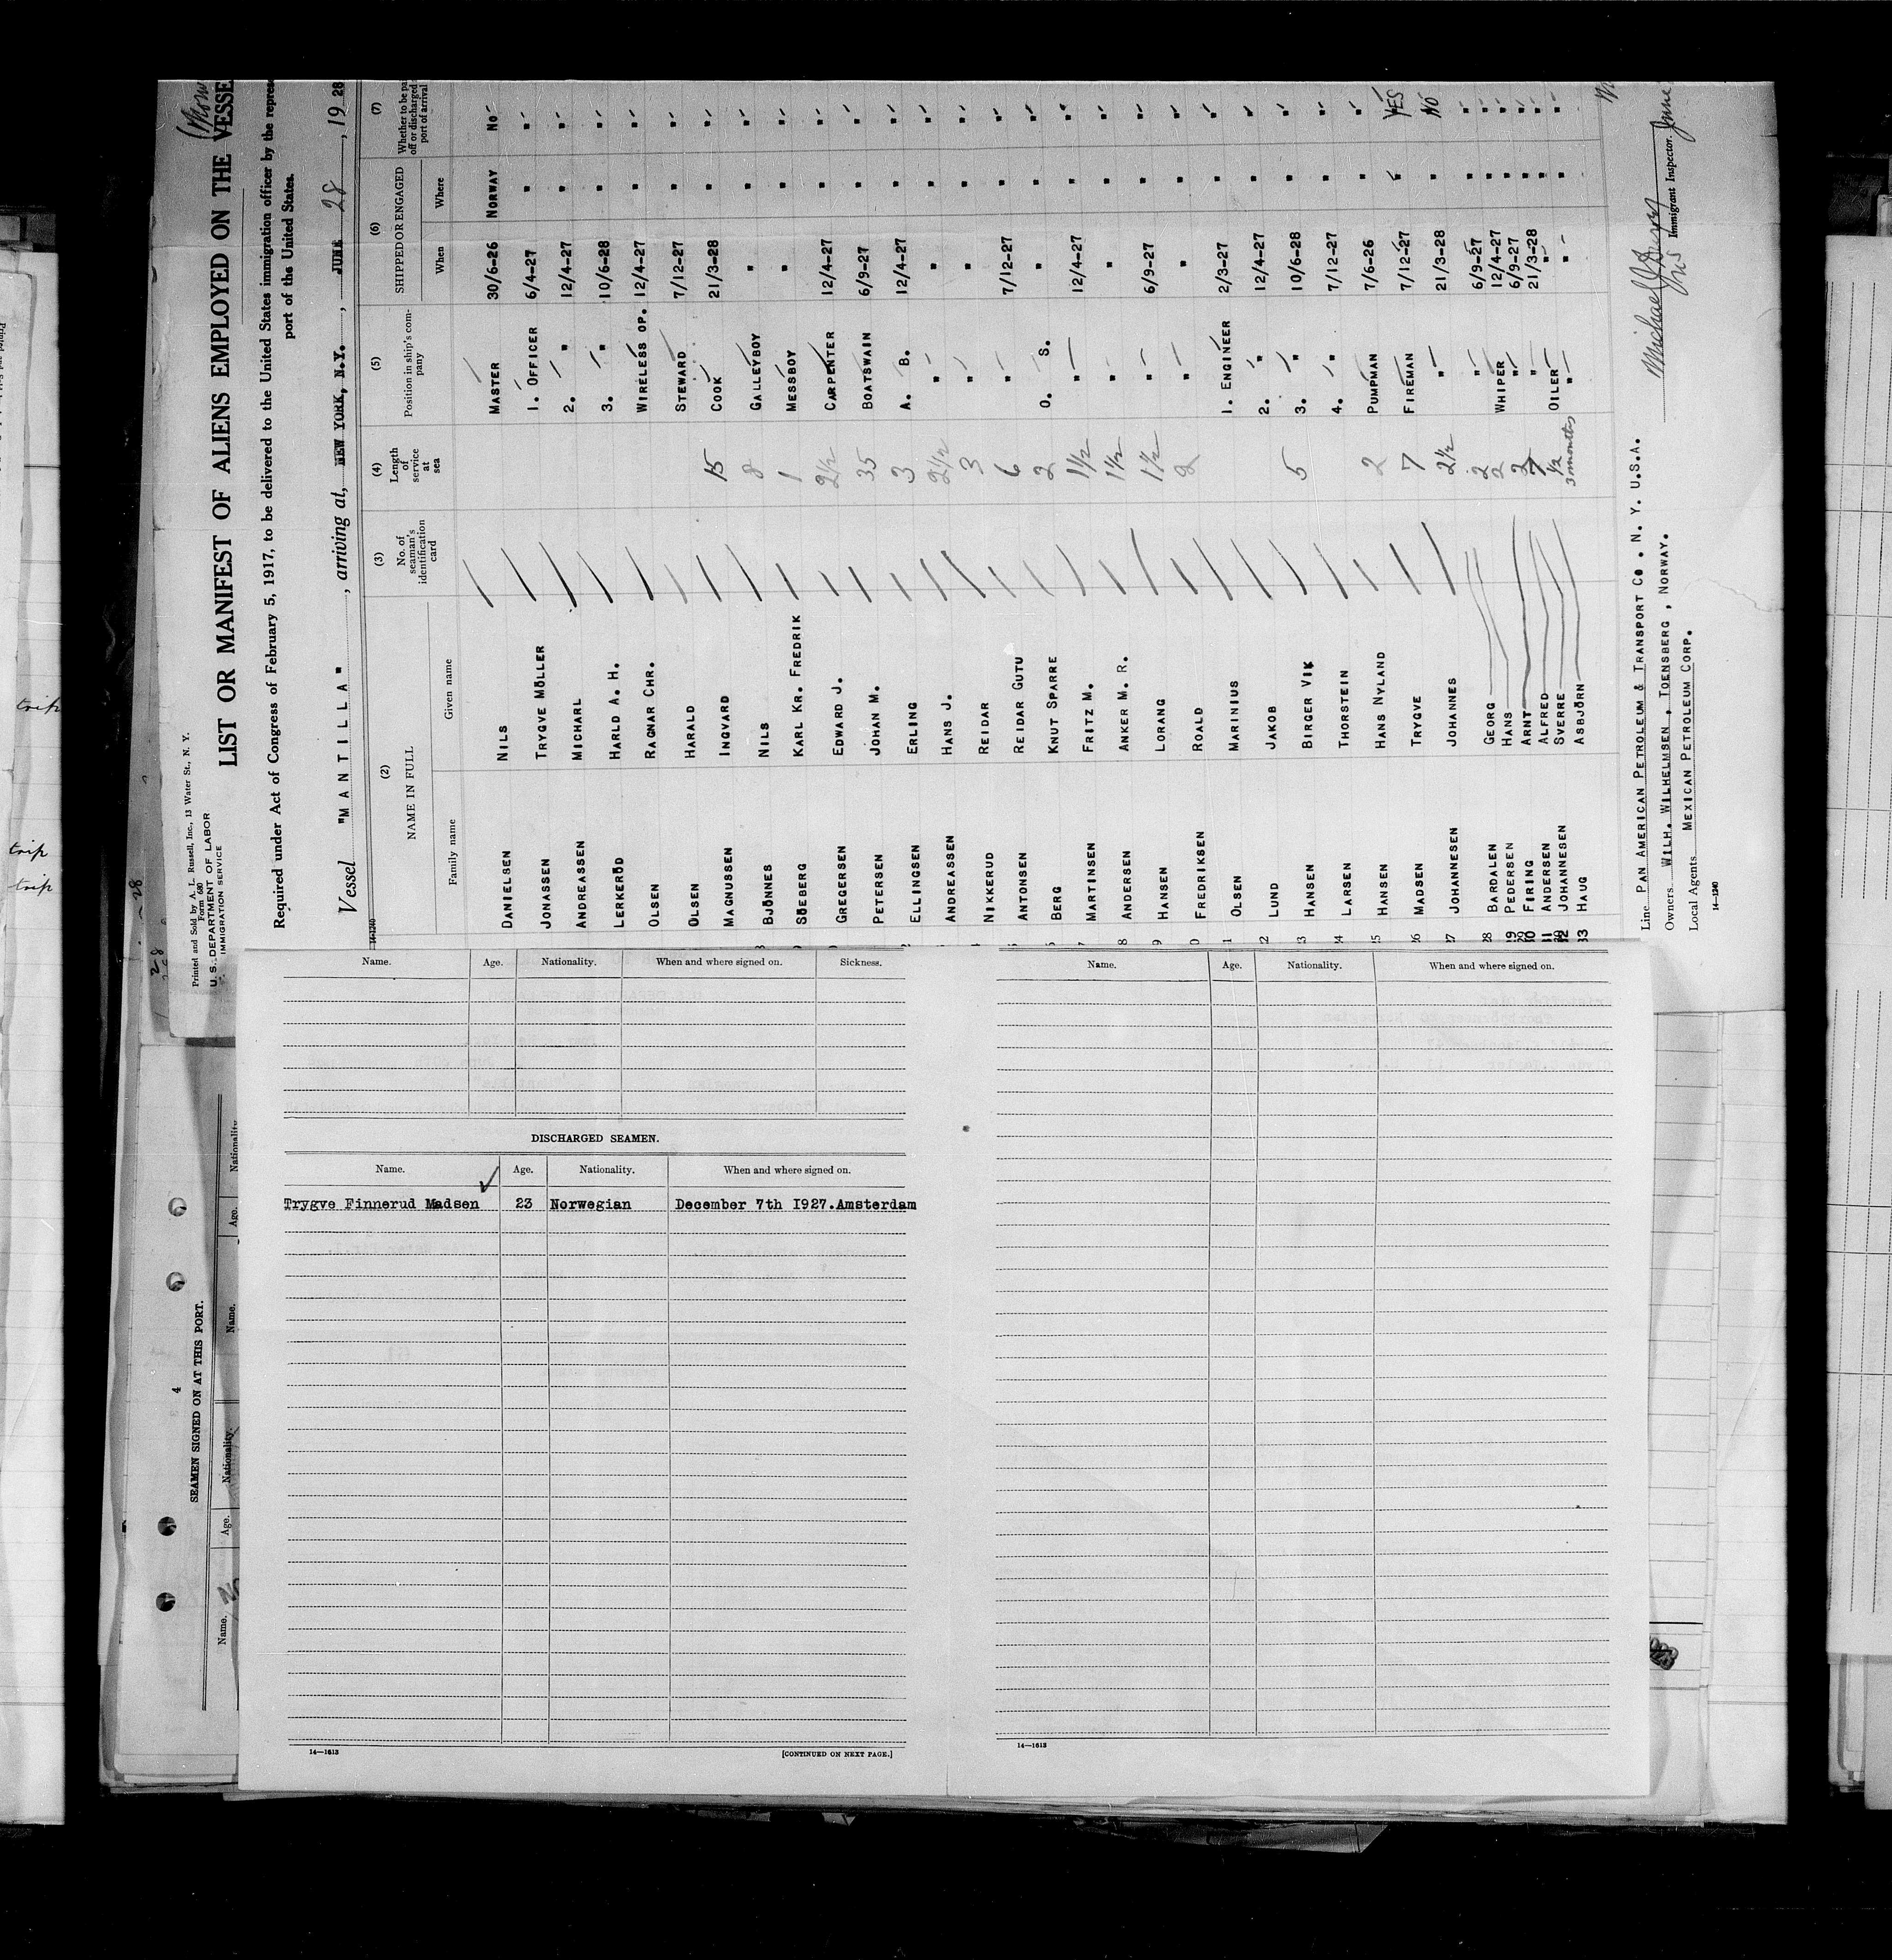 Printed and Sold by A. L. Russell, Inc., 13 Water St., N. Y.
Form 680
U. S. DEPARTMENT OF LABOR
IMMIGRATION SERVICE
LIST OR MANIFEST OF ALIENS EMPLOYED ON THE VESSE
Required under Act of Congress of February 5, 1917, to be delivered to the United States immigration officer by the repres
port of the United States.
Vessel "MANTILLA", arriving at, NEW YORK, N.Y., JUNE 28, 1928
14-1240
(2) (3) (4) (5) (6) (7)
NAME IN FULL No. of seaman's identification card Length of service at sea Position in ship's company SHIPPED OR ENGAGED Whether to be pa off or discharged port of arrival
Family name Given name When Where
DANIELSEN NILS MASTER 30/6-26 NORWAY No
JONASSEN TRYGVE MÖLLER 1. OFFICER 6/4-27 " "
ANDREASSEN MICHARL 2. " 12/4-27 " "
LERKERÖD HARLD A. H. 3. " 10/6-28 " "
OLSEN RAGNAR CHR. WIRELESS OP. 12/4-27 " "
OLSEN HARALD STEWARD 7/12-27 " "
MAGNUSSEN INGVARD 15 COOK 21/3-28 " "
BJÖNNES NILS 8 GALLEYBOY " " "
SÖEBERG KARL KR. FREDRIK 1 MESSBOY " " "
GREGERSEN EDWARD J. 2½ CARPENTER 12/4-27 " "
PETERSEN JOHAN M. 35 BOATSWAIN 6/9-27 " "
ELLINGSEN ERLING 3 A. B. 12/4-27 " "
ANDREASSEN HANS J. 2½ " " " "
NIKKERUD REIDAR 3 " " " "
ANTONSEN REIDAR GUTU 6 " 7/12-27 " "
BERG KNUT SPARRE 2 O. S. " " "
MARTINSEN FRITZ M. 1½ " 12/4-27 " "
ANDERSEN ANKER M. R. 1½ " " " "
HANSEN LORANG 1½ " 6/9-27 " "
FREDRIKSEN ROALD 2 " " " "
OLSEN MARINIUS 1. ENGINEER 2/3-27 " "
LUND JAKOB 2. " 12/4-27 " "
HANSEN BIRGER VIK 5 3. " 10/6-28 " "
LARSEN THORSTEIN 4. " 7/12-27 " "
HANSEN HANS NYLAND 2 PUMPMAN 7/6-26 " "
MADSEN TRYGVE 7 FIREMAN 7/12-27 " YES
JOHANNESEN JOHANNES 2½ " 21/3-28 " NO
28 BARDALEN GEORG 2 " 6/9-27 " "
PEDERSEN HANS 2 WHIPER 12/4-27 " "
FIRING ARNT 2 " 6/9-27 " "
ANDERSEN ALFRED 7 " 21/3-28 " "
JOHANNESEN SVERRE ½ OILER " " "
33 HAUG ASBJÖRN 3 months " " " "
Line PAN AMERICAN PETROLEUM & TRANSPORT CO. N. Y. U.S.A.
Owners WILH. WILHELMSEN, TOENSBERG, NORWAY.
Local Agents MEXICAN PETROLEUM CORP.
14-1240
Immigrant Inspector. June
Name. Age. Nationality. When and where signed on. Sickness.
DISCHARGED SEAMEN.
Name. Age. Nationality. When and where signed on.
Trygve Finnerud Madsen 23 Norwegian December 7th 1927. Amsterdam
14—1613 [CONTINUED ON NEXT PAGE.]
Name. Age. Nationality. When and where signed on.
14—1613
4
SEAMEN SIGNED ON AT THIS PORT.
Name. Age. Nationality. Name. Age. Nationality
trip
trip
trip